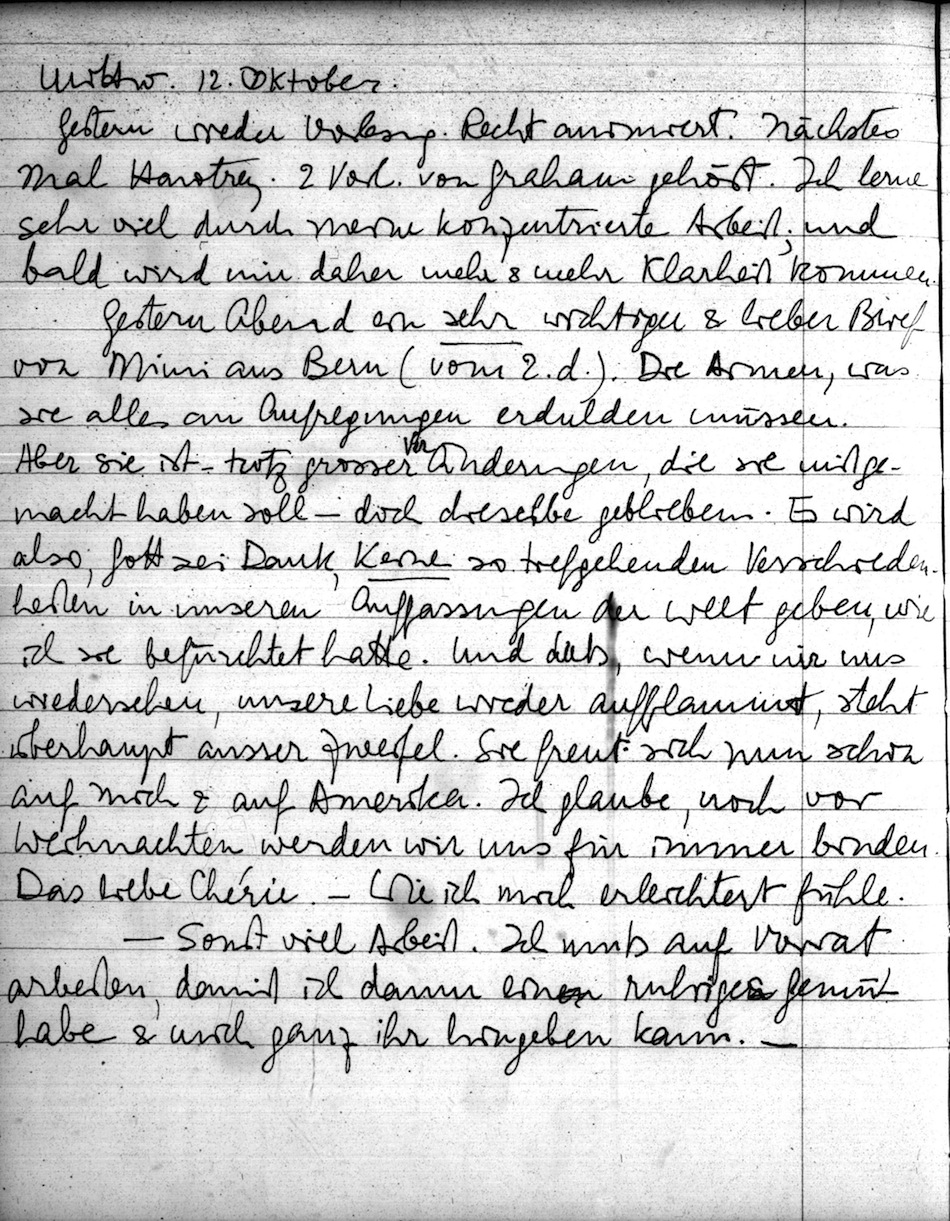 Mittw. 12. Oktober.
Gestern wieder Vorlesung. Recht animiert. Nächstes
Mal Hawtrey. 2 Vorl. von Graham gehört. Ich lerne
sehr viel durch meine konzentrierte Arbeit, und
bald wird mir daher mehr & mehr Klarheit kommen.
Gestern Abend ein sehr wichtiger & lieber Brief
von Mimi aus Bern (vom 2. d.). Die Armen, was
sie alles an Aufregungen erdulden müssen.
Aber sie ist – trotz grosser Veränderungen, die sie mitge-
macht haben soll – doch dieselbe geblieben. Es wird
also, Gott sei Dank, keine so tiefgehenden Verschieden-
heiten in unseren Auffassungen der Welt geben, wie
ich sie befürchtet hatte. Und daß, wenn wir uns
wiedersehen, unsere Liebe wieder aufflammt, steht
überhaupt ausser Zweifel. Sie freut sich nun schon
auf mich & auf Amerika. Ich glaube, noch vor
Weihnachten werden wir uns für immer binden.
Das liebe Chérie. – Wie ich mich erleichtert fühle.
– Sonst viel Arbeit. Ich muß auf Vorrat
arbeiten, damit ich dann ein ruhiges Gemüt
habe & mich ganz ihr hingeben kann. –